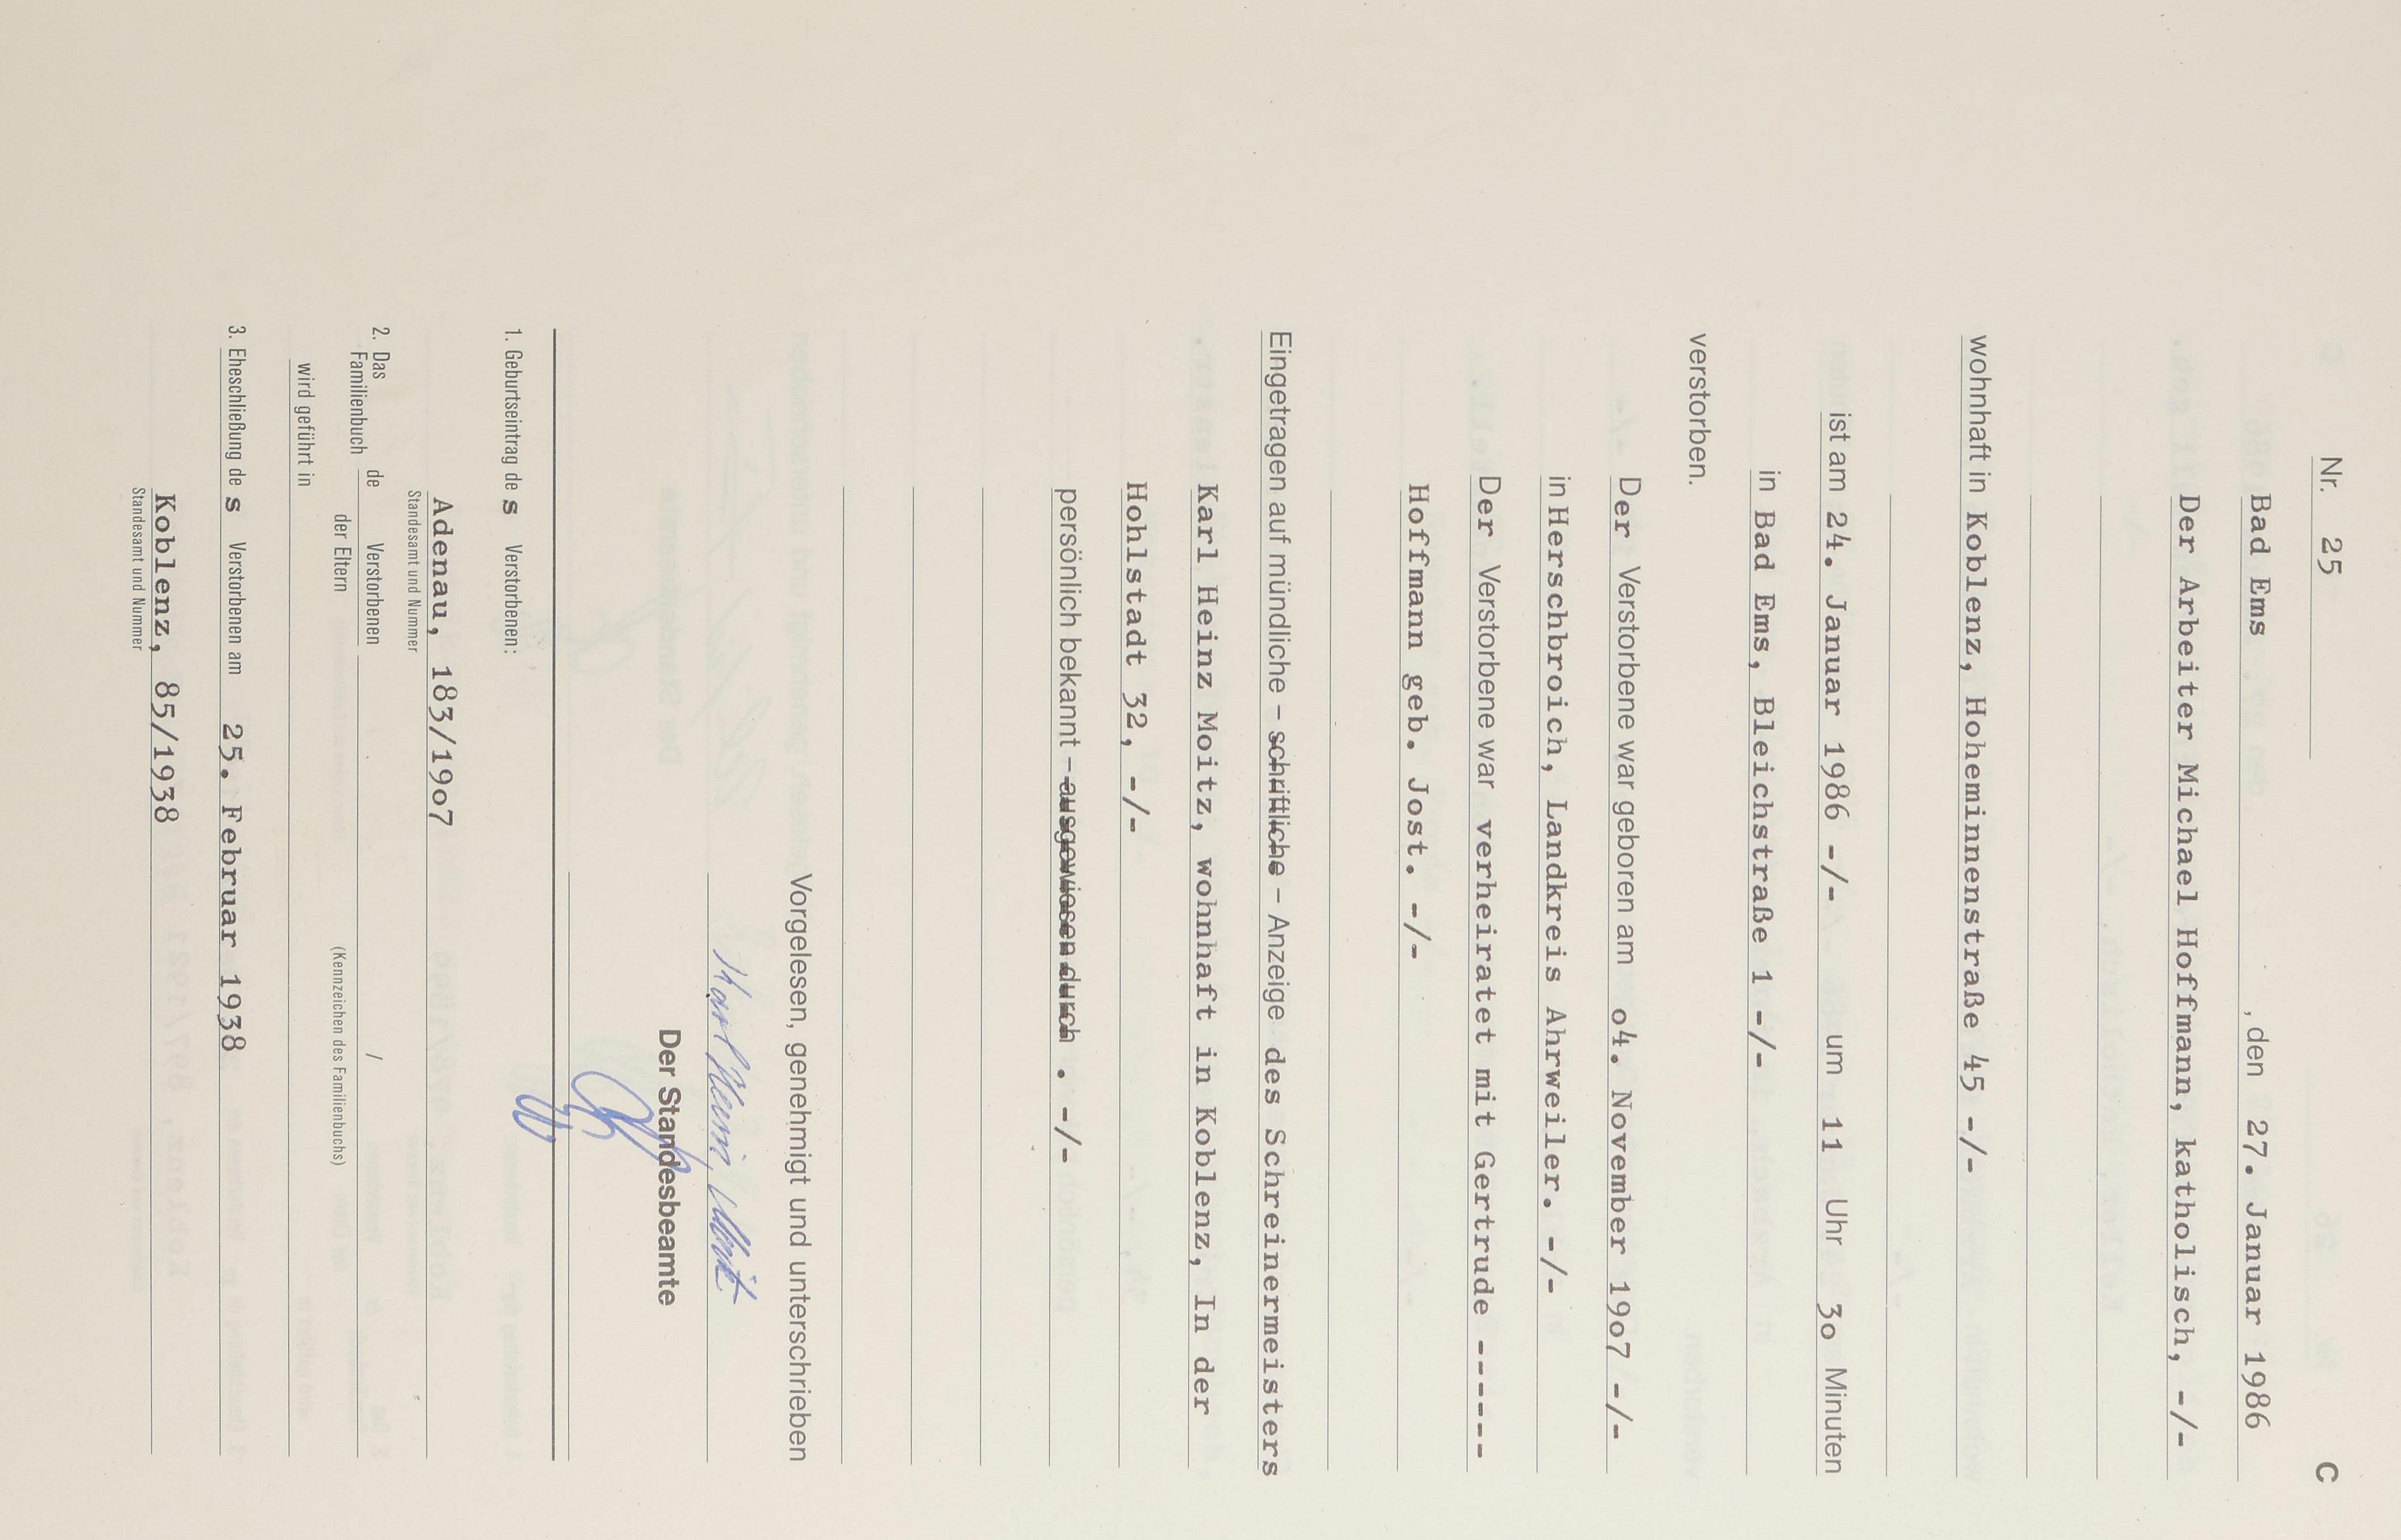 Nr. 25 C
Bad Ems , den 27. Januar 1986
Der Arbeiter Michael Hoffmann, katholisch, -/-
wohnhaft in Koblenz, Hoheminnenstraße 45 -/-
ist am 24. Januar 1986 -/- um 11 Uhr 3o Minuten
in Bad Ems, Bleichstraße 1 -/-
verstorben.
Der Verstorbene war geboren am o4. November 19o7 -/-
in Herschbroich, Landkreis Ahrweiler. -/-
Der Verstorbene war verheiratet mit Gertrude ------
Hoffmann geb. Jost. -/-
Eingetragen auf mündliche – schriftliche – Anzeige des Schreinermeisters
Karl Heinz Moitz, wohnhaft in Koblenz, In der
Hohlstadt 32, -/-
persönlich bekannt – ausgewiesen durch . -/-
Vorgelesen, genehmigt und unterschrieben
Karl Heinz Moitz
Der Standesbeamte
1. Geburtseintrag de s Verstorbenen:
Adenau, 183/19o7
Standesamt und Nummer
2. Das Familienbuch de Verstorbenen /
der Eltern (Kennzeichen des Familienbuchs)
wird geführt in
3. Eheschließung de s Verstorbenen am 25. Februar 1938
Koblenz, 85/1938
Standesamt und Nummer